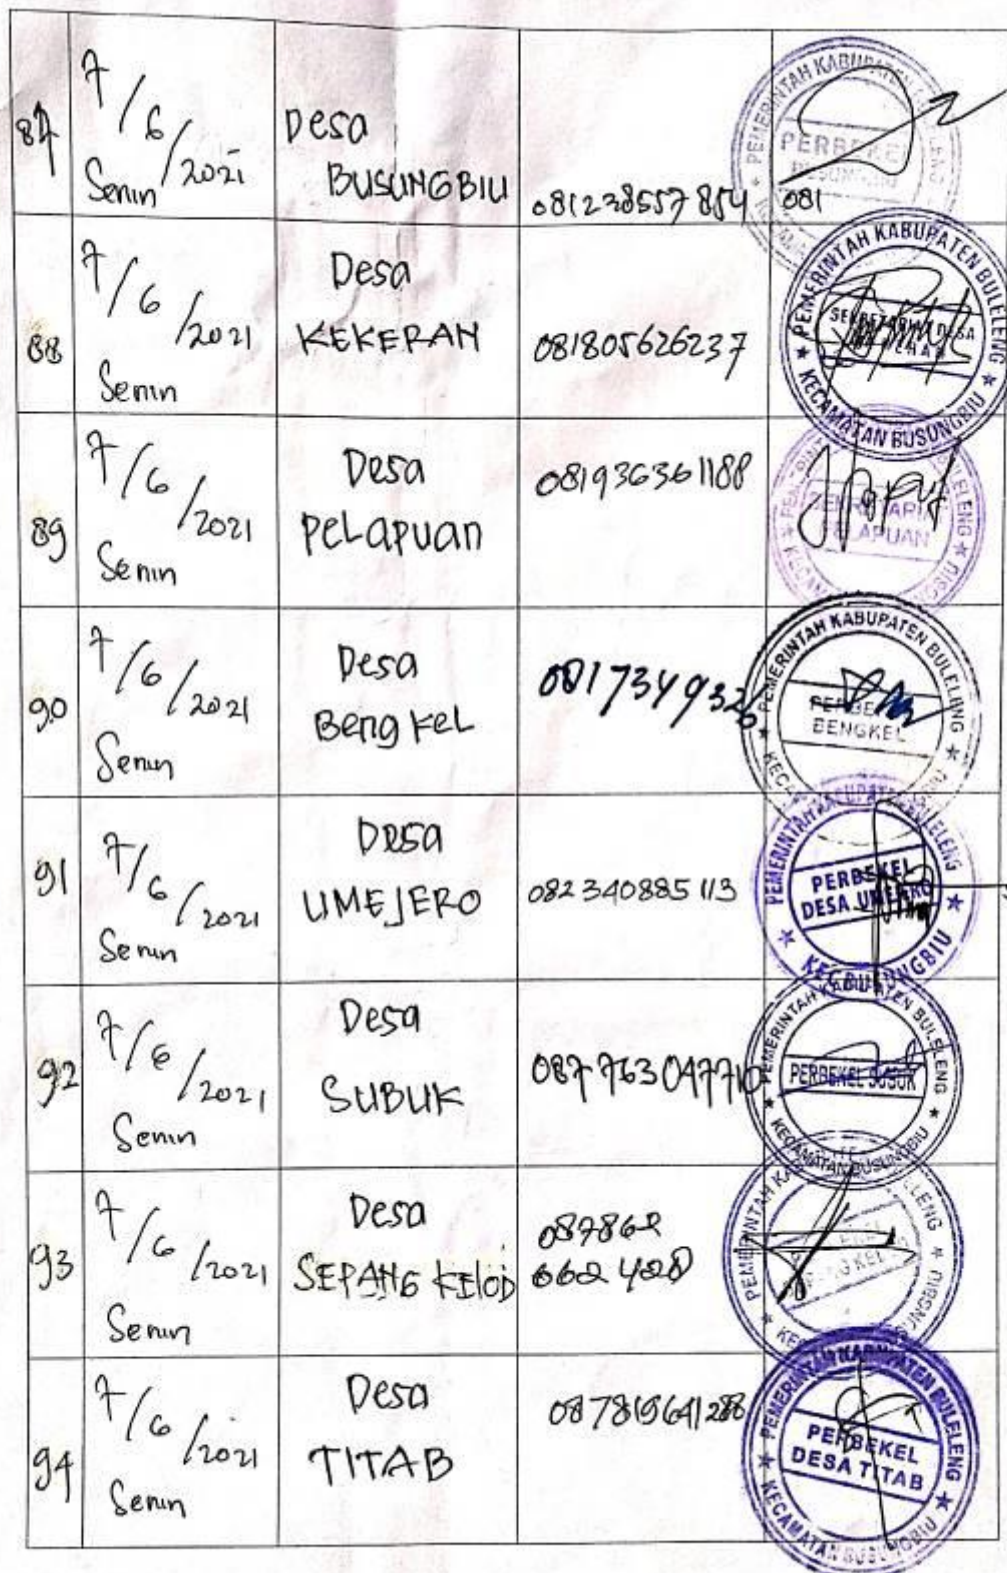 87
7/6/2021
Senin
Desa
BUSUNGBIU
081238557854
081
PEMERINTAH KABUPATEN
PERBEKEL
BUSUNGBIU
88
7/6/2021
Senin
Desa
KEKERAN
081805626237
PEMERINTAH KABUPATEN BULELENG
SEKRETARIAT DESA
KECAMATAN BUSUNGBIU
89
7/6/2021
Senin
Desa
PELapuan
081936361188
BULELENG
PELAPUAN
90
7/6/2021
Senin
Desa
Bengkel
0817349326
PEMERINTAH KABUPATEN BULELENG
PERBEKEL
BENGKEL
91
7/6/2021
Senin
Desa
UMEJERO
082340885113
PEMERINTAH KABUPATEN BULELENG
PERBEKEL
DESA UMEJERO
KEC. BUSUNGBIU
92
7/6/2021
Senin
Desa
SUBUK
087763047710
PEMERINTAH KABUPATEN BULELENG
PERBEKEL SUBUK
KECAMATAN BUSUNGBIU
93
7/6/2021
Senin
Desa
SEPANG KELOD
087862
662428
PEMERINTAH
94
7/6/2021
Senin
Desa
TITAB
087819641288
PEMERINTAH KABUPATEN BULELENG
PERBEKEL
DESA TITAB
KECAMATAN BUSUNGBIU